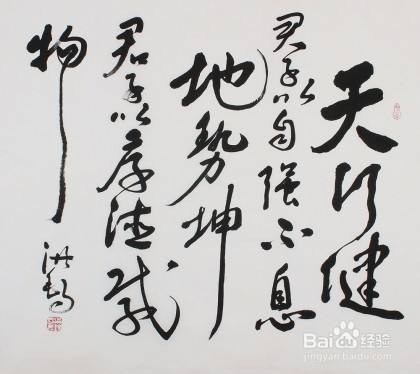 天行健
君子以自强不息
地势坤
君子以厚德载
物
Baidu经验
jingyan.baidu.com